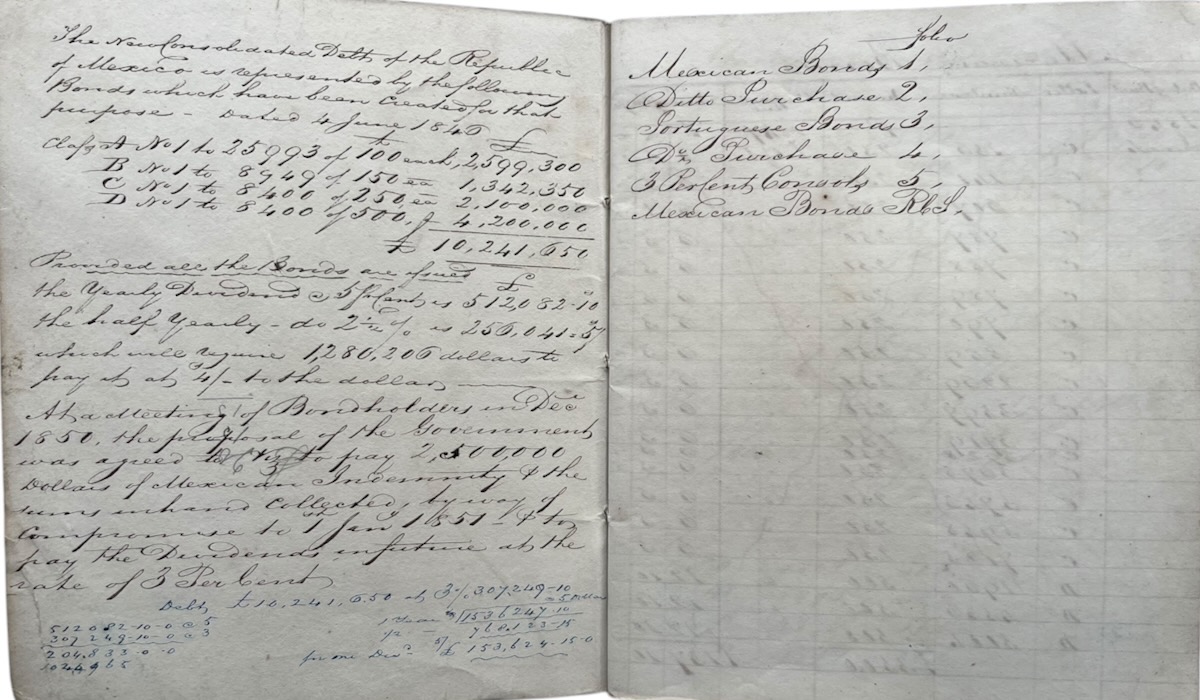 The New Consolidated Debt of the Republic
of Mexico is represented by the following
Bonds which have been Created for that
purpose - Dated 4 June 1846
£ £
Class A No 1 to 25993 of 100 each, 2,599,300
B No 1 to 8949 of 150 ea 1,342,350
C No 1 to 8400 of 250, ea 2,100,000
D No 1 to 8400 of 500, £ 4,200,000
£ 10,241,650
Provided all the Bonds are issued £
the Yearly Dividend @ 5 PrCent is 512,082-10
the half Yearly - do 2½ % is 256,041=5
which will require 1,280,206 dollars to
pay it at 4/- to the dollar,
At a Meeting of Bondholders in Dec
1850, the proposal of the Government
was agreed to to pay 2,500,000
Dollars of Mexican Indemnity & the
sums in hand Collected, by way of
Compromise to 1st Jany 1851 - & to
pay the Dividends in future at the
rate of 3 Per Cent
Debt £ 10,241,650 at 3% 307,249-10
5 Dollar
512082-10-0 @ 5
307249-10-0 @ 3
204.833-0-0
1 Year 1536247.10
1/2 - 768123-15
for one Divd £ 153,624.15-0
Folio
Mexican Bonds 1,
Ditto Purchase 2,
Portuguese Bonds 3,
Do Purchase 4,
3 PerCent Consols 5,
Mexican Bonds